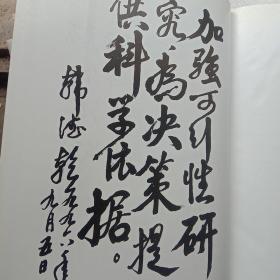 加强可行性研
究，为决策提
供科学依据。
韩德乾一九九六年
九月五日